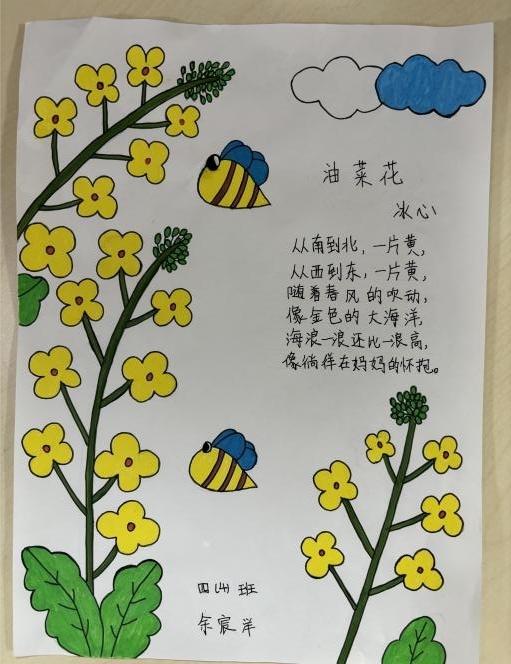 油菜花
冰心
从南到北，一片黄，
从西到东，一片黄，
随着春风的吹动，
像金色的大海洋，
海浪一浪还比一浪高，
像徜徉在妈妈的怀抱。
四（4）班
余宸洋